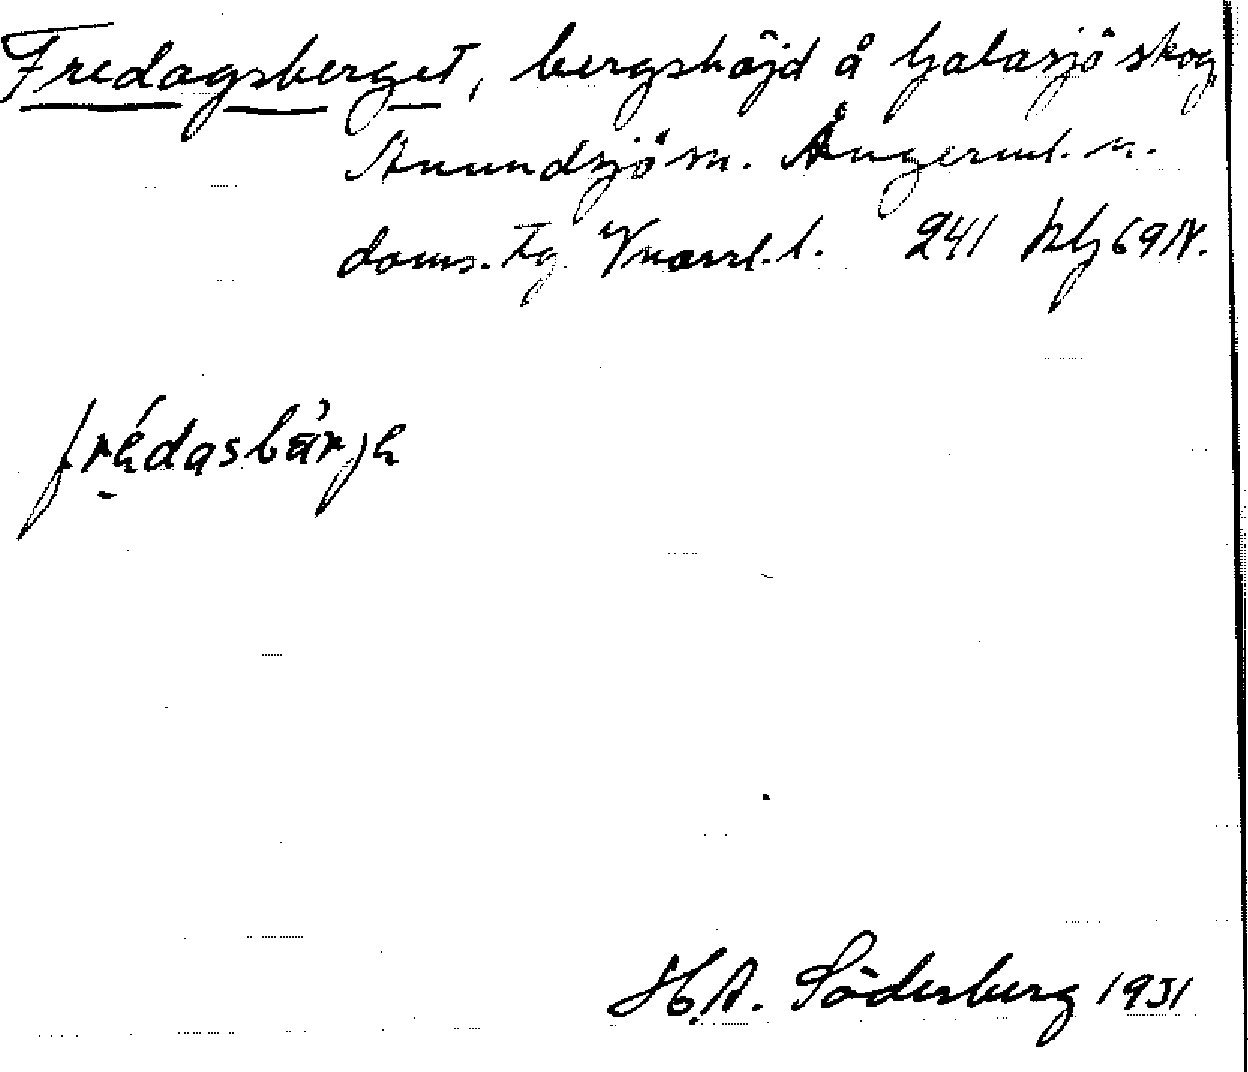 Fredagsberget, bergshöjd å Galasjö skog
Anundsjö sn. Ångerml. n.
doms. tg. Vnorrl. l. 241 Klj 69 N.
frédasbärje
H.A. Söderberg 1931